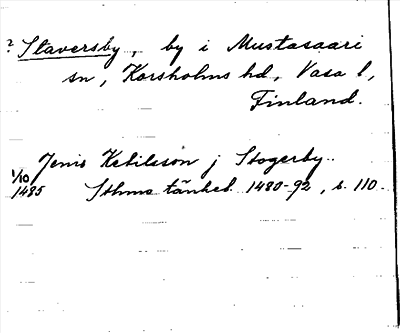 ? Staversby, by i Mustasaari
sn, Korsholms hd, Vasa l,
Finland.
Jenis Ketilsson j Stogerby.
1/10
1485 Sthms tänkeb. 1480-92, s. 110.